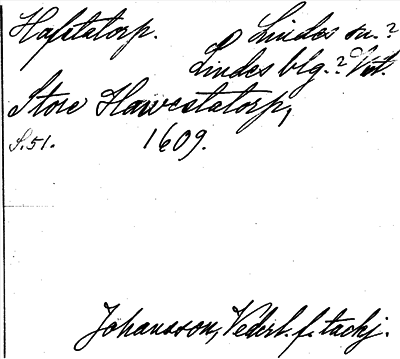 Hafstatorp. Lindes sn.?
Lindes blg.? Vstm.
Store Hawestatorp,
S. 51. 1609.
Johansson, Vederl. f. tackj.